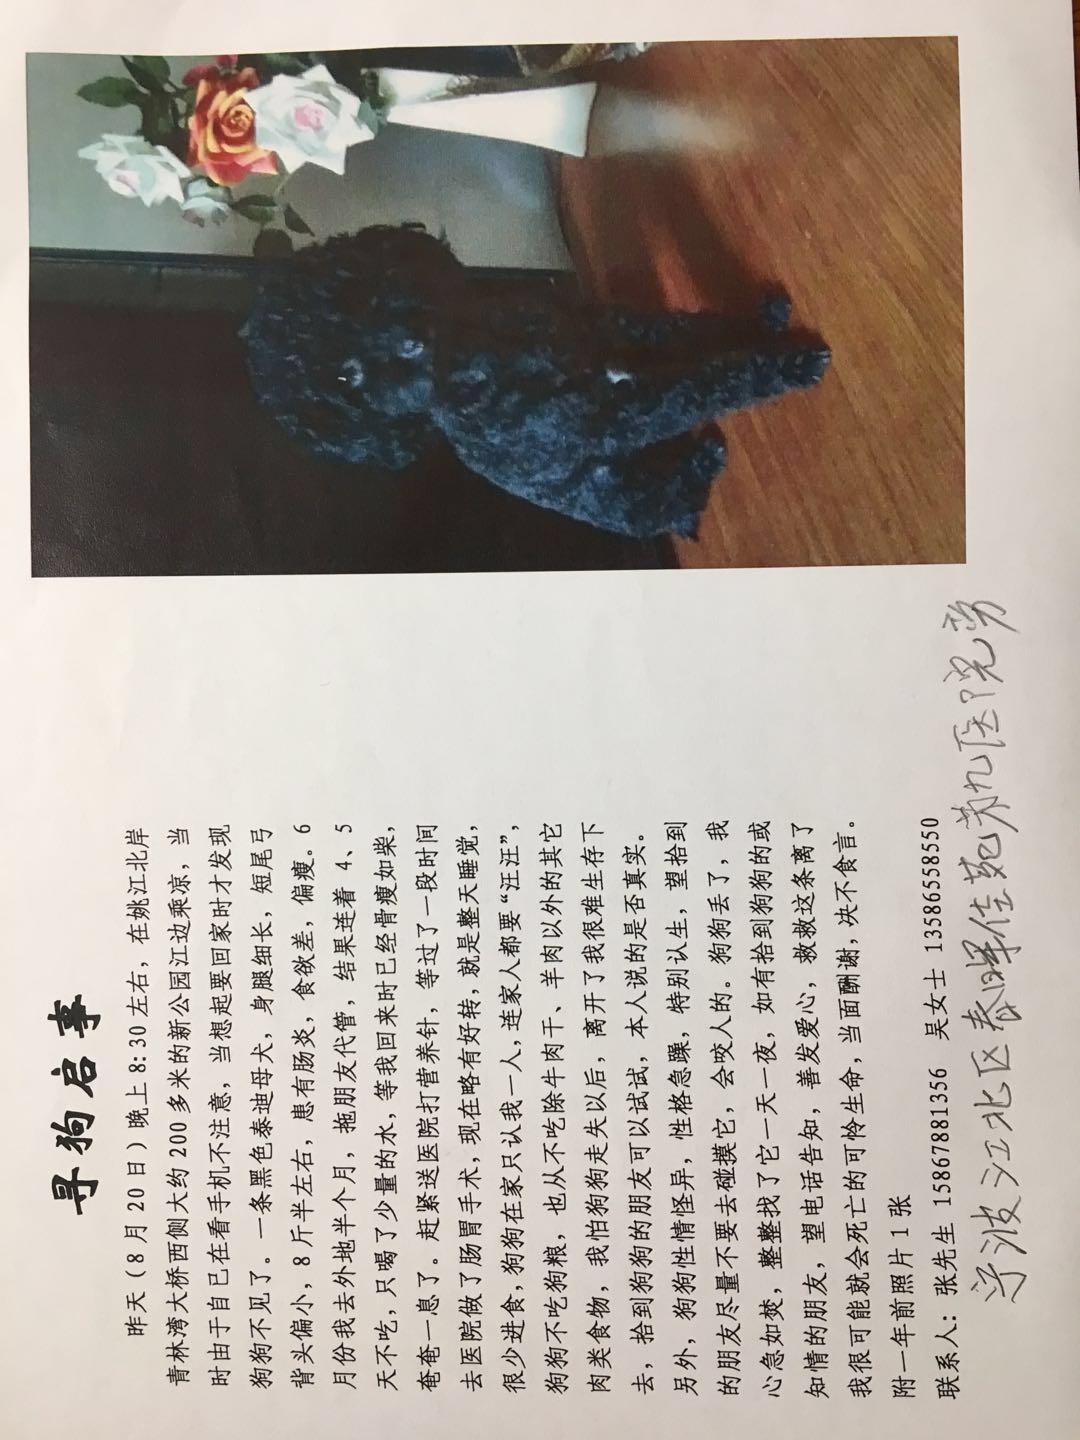 寻狗启事
昨天（8月20日）晚上8:30左右，在姚江北岸
青林湾大桥西侧大约200多米的新公园江边乘凉，当
时由于自已在看手机不注意，当想起要回家时才发现
狗狗不见了。一条黑色泰迪母犬，身腿细长，短尾弓
背头偏小，8斤半左右，患有肠炎，食欲差，偏瘦。6
月份我去外地半个月，拖朋友代管，结果连着4、5
天不吃，只喝了少量的水，等我回来时已经骨瘦如柴，
奄奄一息了。赶紧送医院打营养针，等过了一段时间
去医院做了肠胃手术，现在略有好转，就是整天睡觉，
很少进食，狗狗在家只认我一人，连家人都要“汪汪”，
狗狗不吃狗粮，也从不吃除牛肉干、羊肉以外的其它
肉类食物，我怕狗狗走失以后，离开了我很难生存下
去，拾到狗狗的朋友可以试试，本人说的是否真实。
另外，狗狗性情怪异，性格急躁，特别认生，望拾到
的朋友尽量不要去碰摸它，会咬人的。狗狗丢了，我
心急如焚，整整找了它一天一夜，如有拾到狗狗的或
知情的朋友，望电话告知，善发爱心，救救这条离了
我很可能就会死亡的可怜生命，当面酬谢，决不食言。
附一年前照片1张
联系人：张先生 15867881356 吴女士 13586558550
宁波江北区春晖佳苑第九医院旁